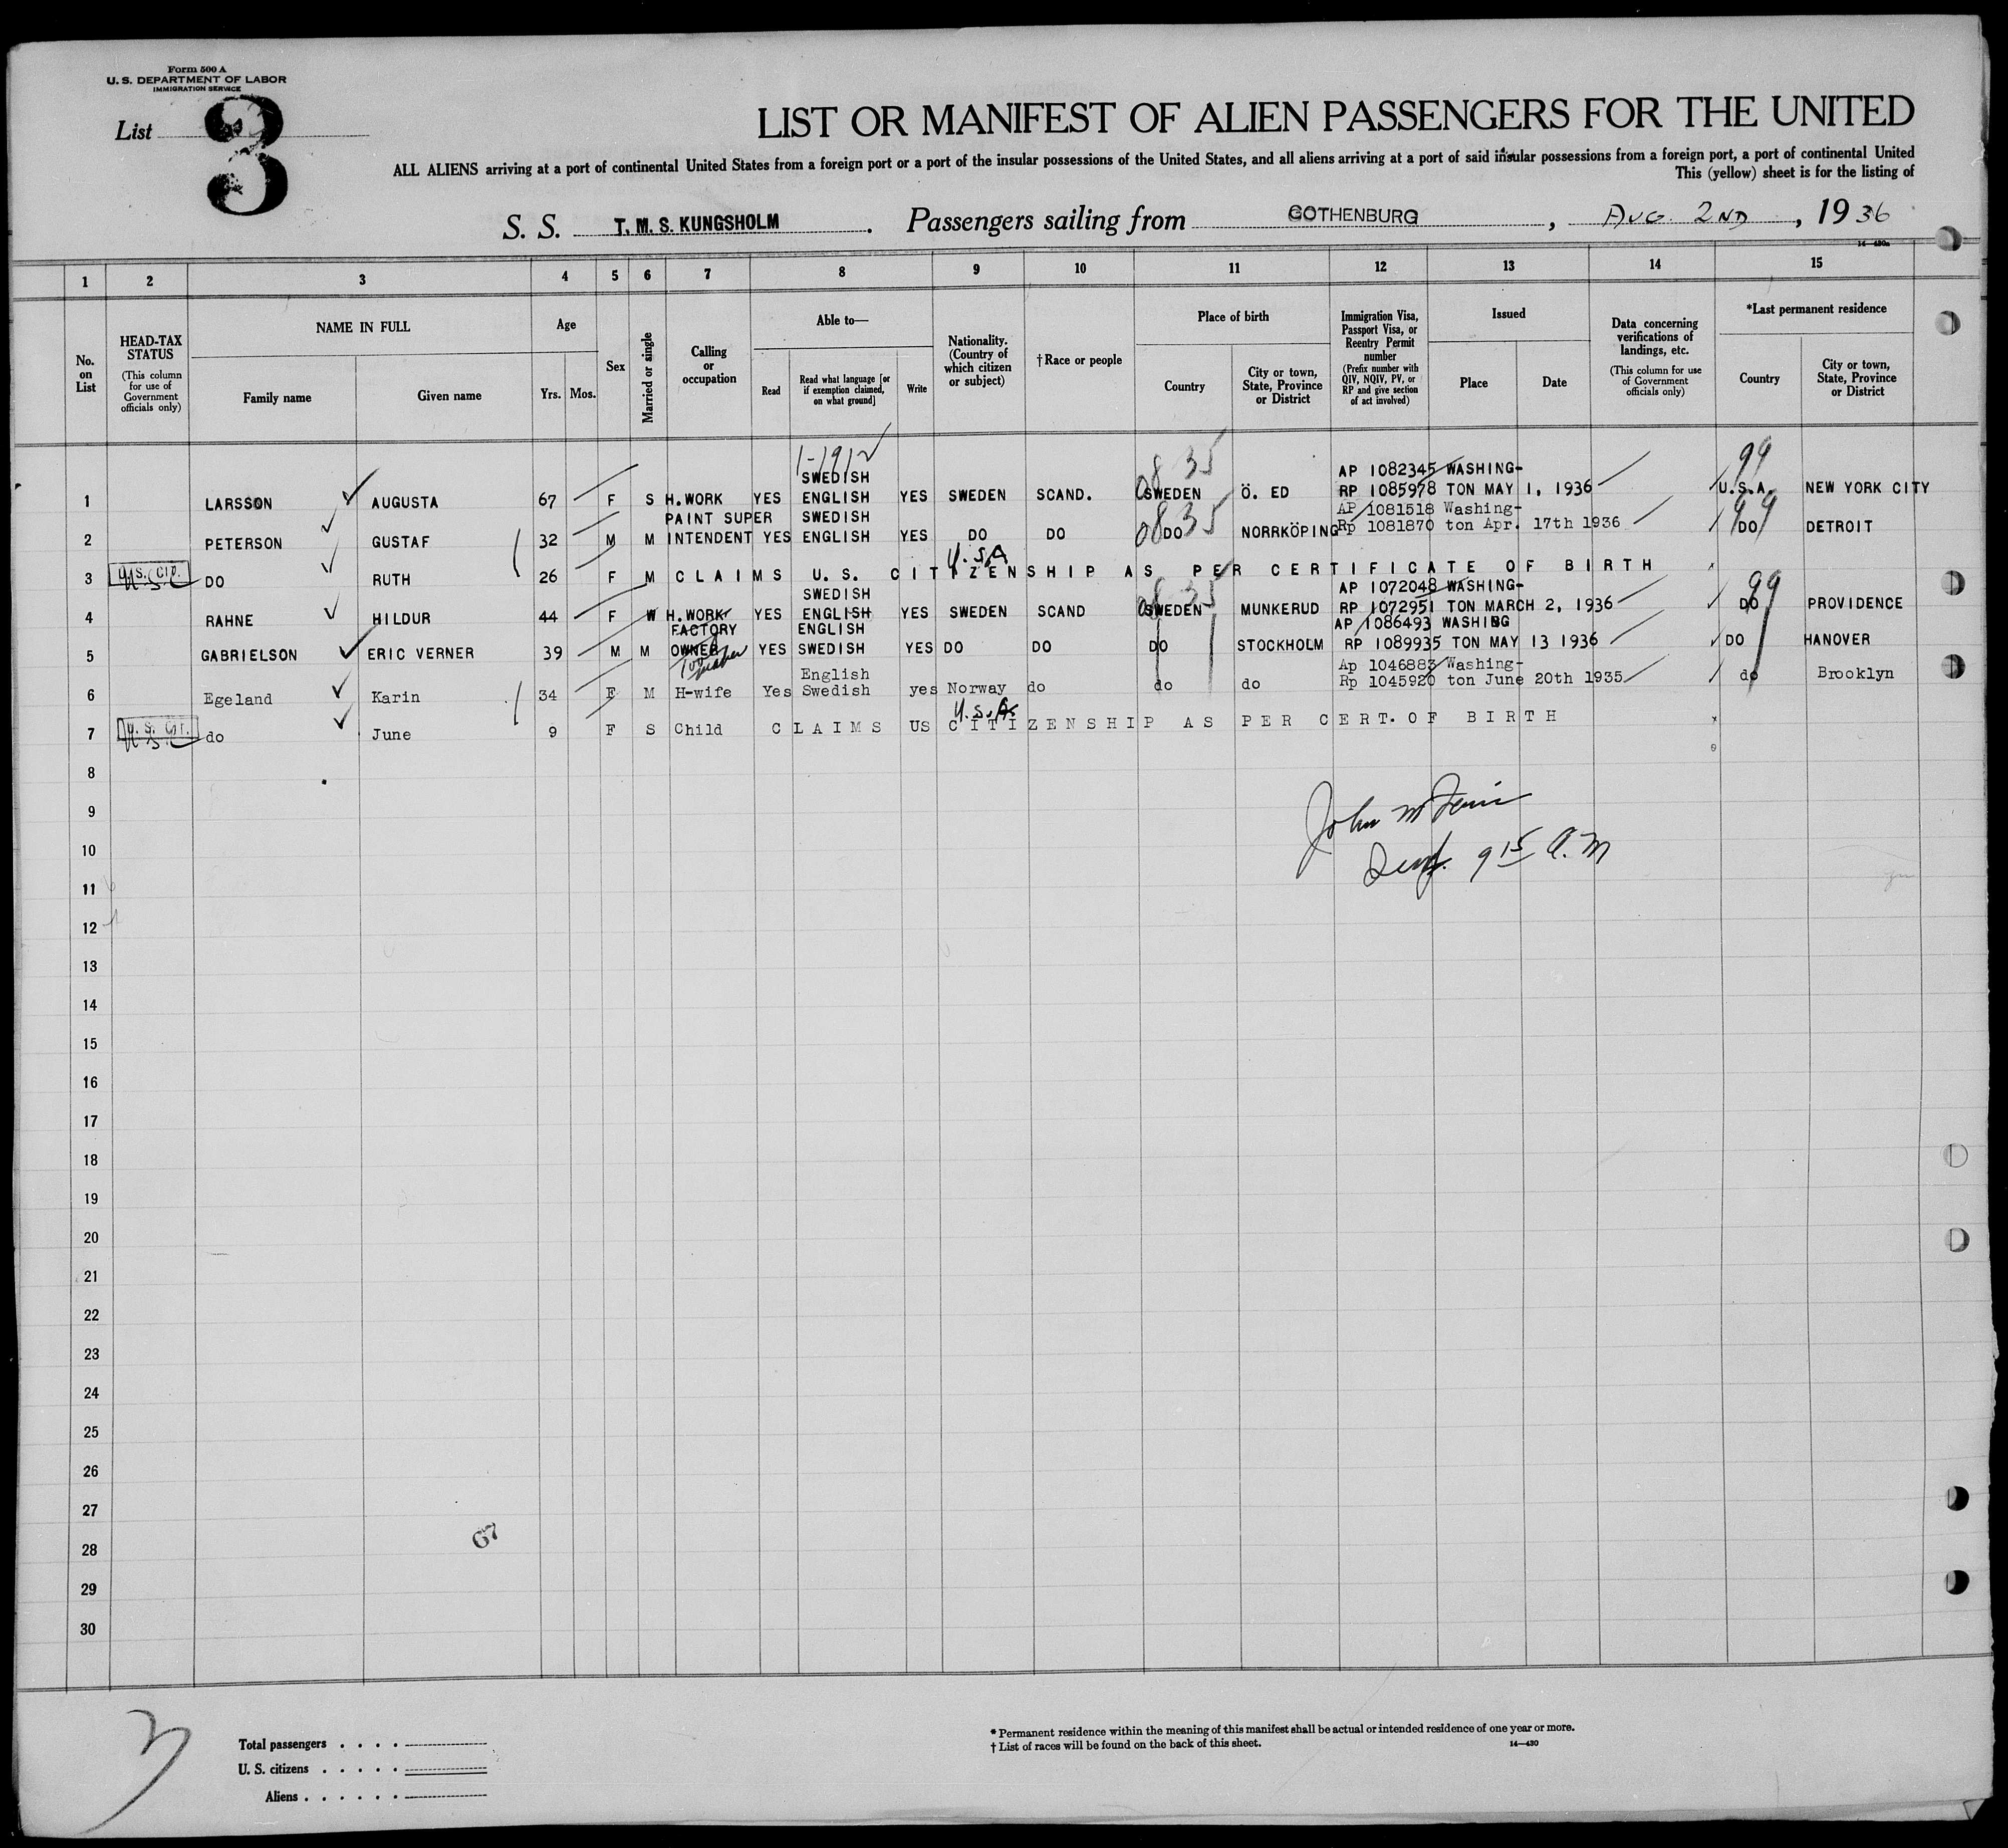 Form 500 A
U. S. DEPARTMENT OF LABOR
IMMIGRATION SERVICE
List 3
LIST OR MANIFEST OF ALIEN PASSENGERS FOR THE UNITED
ALL ALIENS arriving at a port of continental United States from a foreign port or a port of the insular possessions of the United States, and all aliens arriving at a port of said insular possessions from a foreign port, a port of continental United
This (yellow) sheet is for the listing of
S. S. T. M. S. KUNGSHOLM . Passengers sailing from GOTHENBURG , AUG. 2ND , 1936
14—430a
1 2 3 4 5 6 7 8 9 10 11 12 13 14 15
No. on List
HEAD-TAX STATUS (This column for use of Government officials only)
NAME IN FULL Family name Given name
Age Yrs. Mos.
Sex
Married or single
Calling or occupation
Able to— Read Read what language [or if exemption claimed, on what ground] Write
Nationality. (Country of which citizen or subject)
†Race or people
Place of birth Country City or town, State, Province or District
Immigration Visa, Passport Visa, or Reentry Permit number (Prefix number with QIV, NQIV, PV, or RP and give section of act involved)
Issued Place Date
Data concerning verifications of landings, etc. (This column for use of Government officials only)
*Last permanent residence Country City or town, State, Province or District
1-1912 08 35 99
SWEDISH AP 1082345 WASHING-
1 LARSSON AUGUSTA 67 F S H.WORK YES ENGLISH YES SWEDEN SCAND. SWEDEN Ö. ED RP 1085978 TON MAY 1, 1936 U.S.A. NEW YORK CITY
PAINT SUPER SWEDISH 0835 AP 1081518 Washing- 99
2 PETERSON GUSTAF 32 M M INTENDENT YES ENGLISH YES DO DO DO NORRKÖPING Rp 1081870 ton Apr. 17th 1936 DO DETROIT
U.S.A
3 U.S. CIT. U.S.C DO RUTH 26 F M CLAIMS U.S. CITIZENSHIP AS PER CERTIFICATE OF BIRTH x
SWEDISH 08 35 AP 1072048 WASHING- 99
4 RAHNE HILDUR 44 F W H.WORK YES ENGLISH YES SWEDEN SCAND SWEDEN MUNKERUD RP 1072951 TON MARCH 2, 1936 DO PROVIDENCE
FACTORY ENGLISH AP 1086493 WASHING
5 GABRIELSON ERIC VERNER 39 M M OWNER YES SWEDISH YES DO DO DO STOCKHOLM RP 1089935 TON MAY 13 1936 DO HANOVER
English Ap 1046883 Washing-
6 Egeland Karin 34 F M H-wife Yes Swedish yes Norway do do do Rp 1045920 ton June 20th 1935 do Brooklyn
U.S.A.
7 U. S. CIT. U.S.C do June 9 F S Child CLAIMS US CITIZENSHIP AS PER CERT. OF BIRTH x
8
9
John M
10
9 15 A.M
11
12
13
14
15
16
17
18
19
20
21
22
23
24
25
26
27
28
67
29
30
3
Total passengers . . . .
U. S. citizens . . . . .
Aliens . . . . . .
* Permanent residence within the meaning of this manifest shall be actual or intended residence of one year or more.
† List of races will be found on the back of this sheet. 14—430